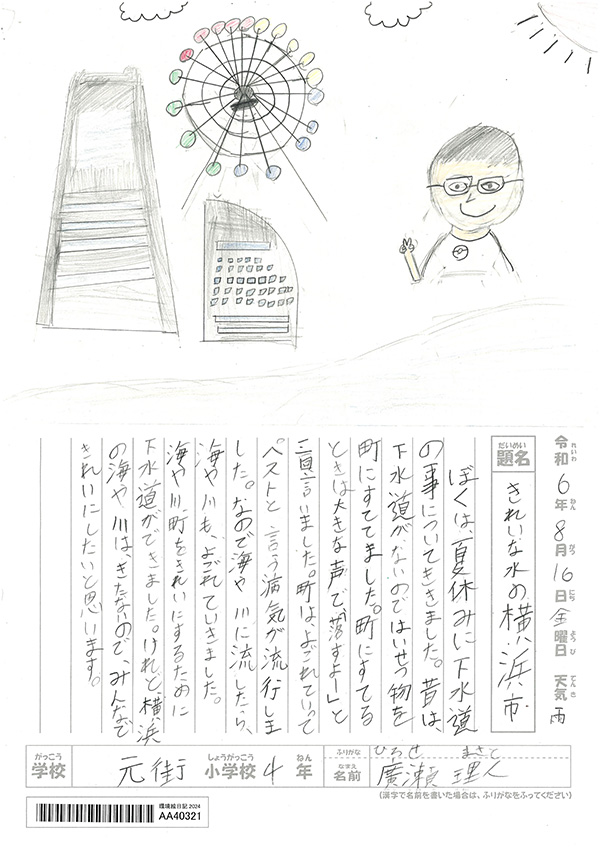 令和6年8月16日金曜日 天気 雨
題名 きれいな水の横浜市
ぼくは、夏休みに下水道
の事についてききました。昔は、
下水道がないのではいせつ物を
町にすててました。町にすてる
ときは大きな声で「落すよー」と
言いました。町は、よごれていって
ペストと言う病気が流行しま
した。なので海や川に流したら、
海や川も、よごれていきました。
海や川、町をきれいにするために
下水道ができました。けれど、横浜
の海や川は、きたないので、みんなで
きれいにしたいと思います。
がっこう しょうがっこう ねん
学校 元街 小学校 4 年
ふりがな ひろせ まさと
なまえ
名前 廣瀬 理人
(漢字で名前を書いた場合は、ふりがなをふってください)
環境絵日記2024
AA40321